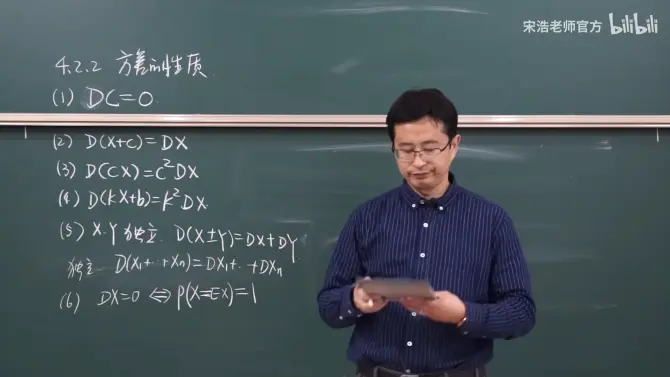 宋浩老师官方 bilibili
4.2.2 方差的性质
(1) DC=0.
(2) D(X+C)=DX
(3) D(CX)=C²DX
(4) D(kX+b)=k²DX.
(5) X.Y 独立. D(X±Y)=DX+DY
独立 D(X₁+…+Xₙ)=DX₁+..+DXₙ
(6) DX=0 ⇔ P(X=EX)=1